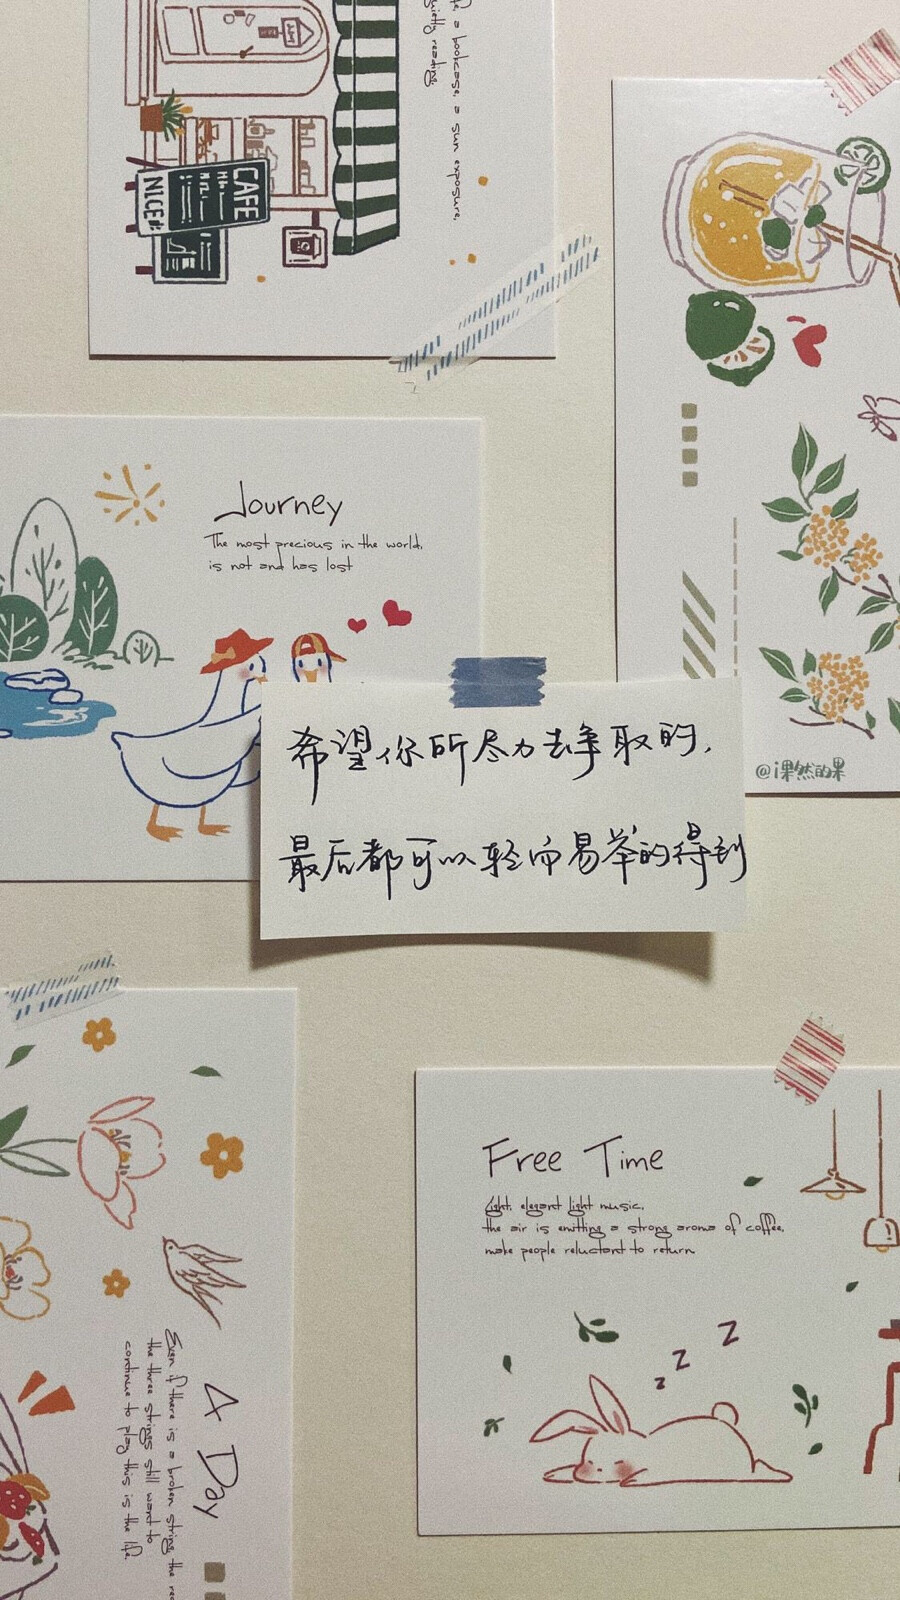 a bookcase, a sun exposure,
quietly reading.
CAFE
NICE
Journey
The most precious in the world,
is not and has lost
希望你所尽力去争取的,
最后都可以轻而易举的得到
@i果然的果
Free Time
Light, elegant light music,
the air is emitting a strong aroma of coffee,
make people reluctant to return
z z z
A Day
Even if there is a broken string, the
the three strings still want to
continue to play this is the life.